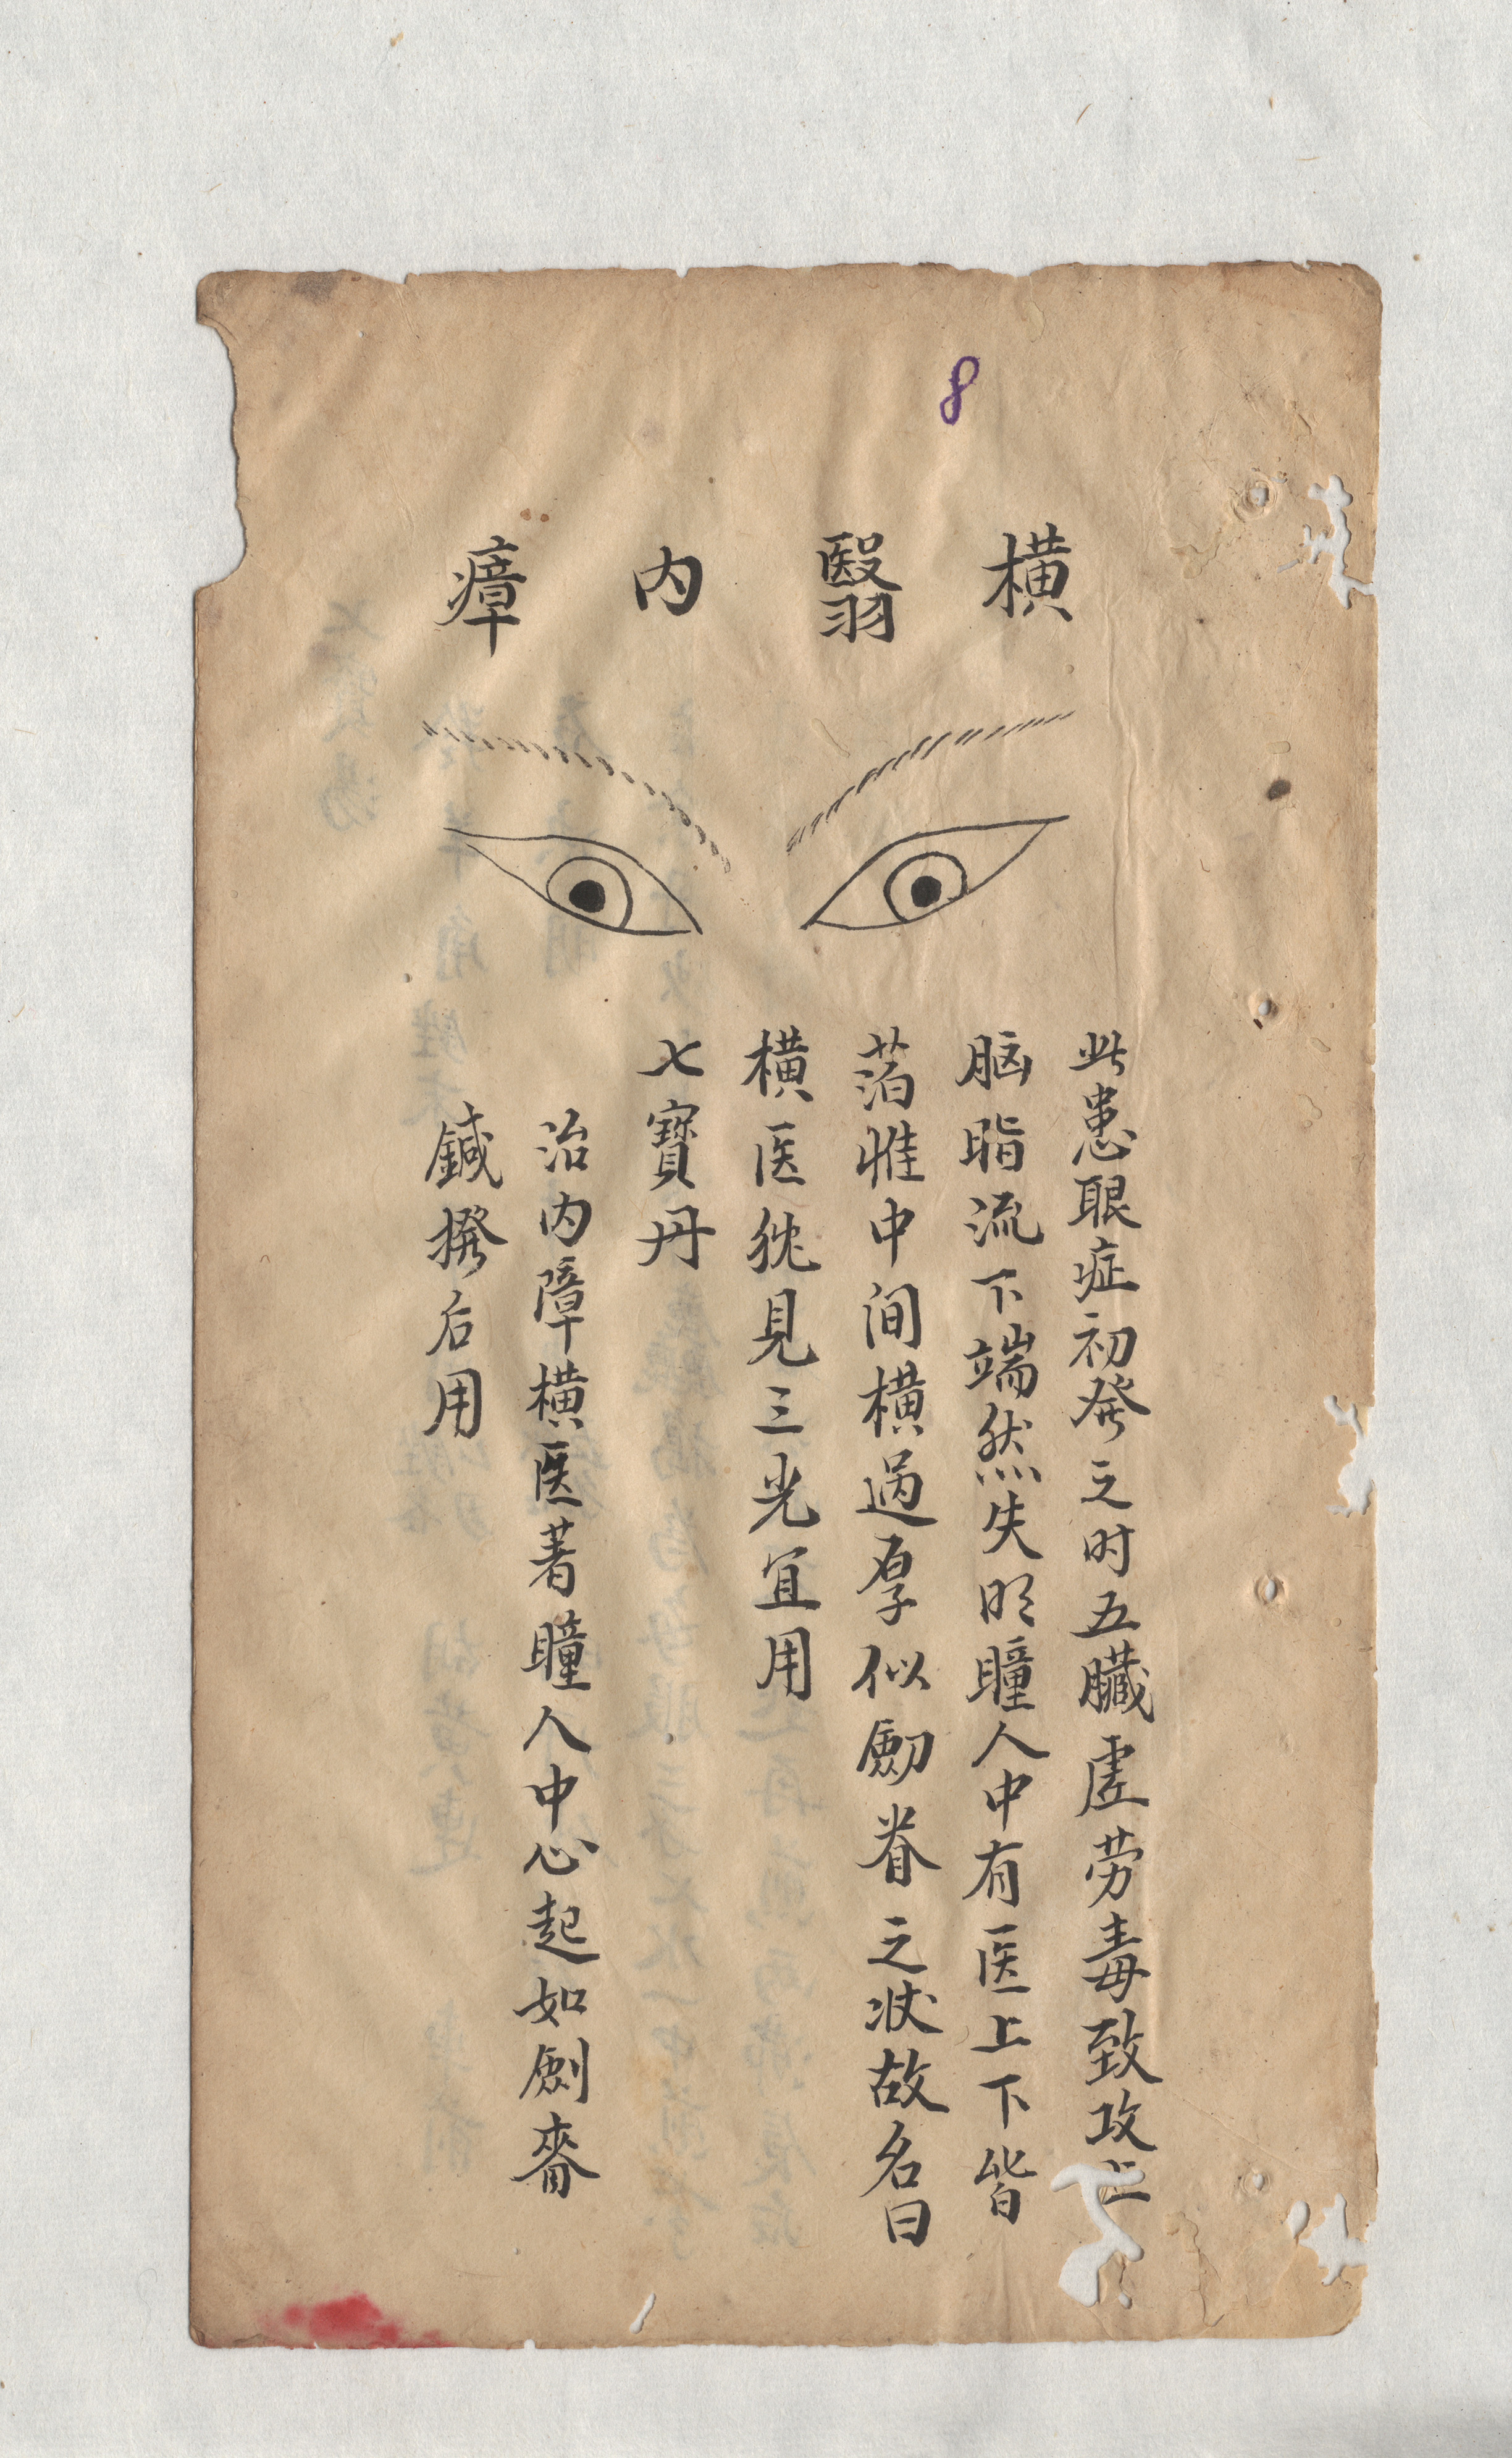 8
橫翳内瘴
此患眼症初発之时五臟虛劳毒致攻上
脑脂流下端然失明瞳人中有医上下皆
萡惟中间橫過厚似劒眷之状故名曰
橫医犹見三光宜用
七寶丹
治内障橫医著瞳人中心起如劍脊
鍼撥后用